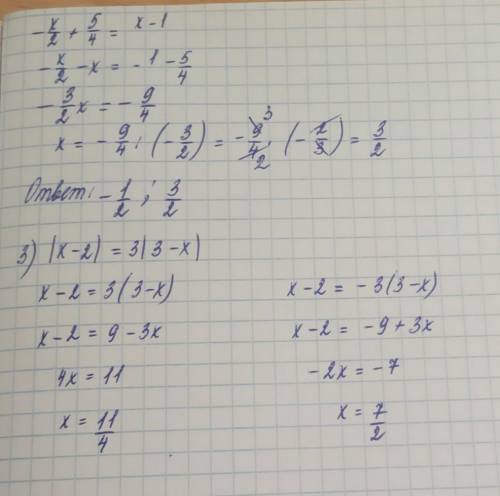 -x/2 + 5/4 = x - 1
-x/2 - x = -1 - 5/4
-3/2 x = -9/4
x = -9/4 : (-3/2) = -9/4 · (-2/3) = 3/2
Ответ: -1/2 ; 3/2
3) |x-2| = 3|3-x|
x-2 = 3(3-x)
x-2 = 9-3x
4x = 11
x = 11/4
x-2 = -3(3-x)
x-2 = -9+3x
-2x = -7
x = 7/2